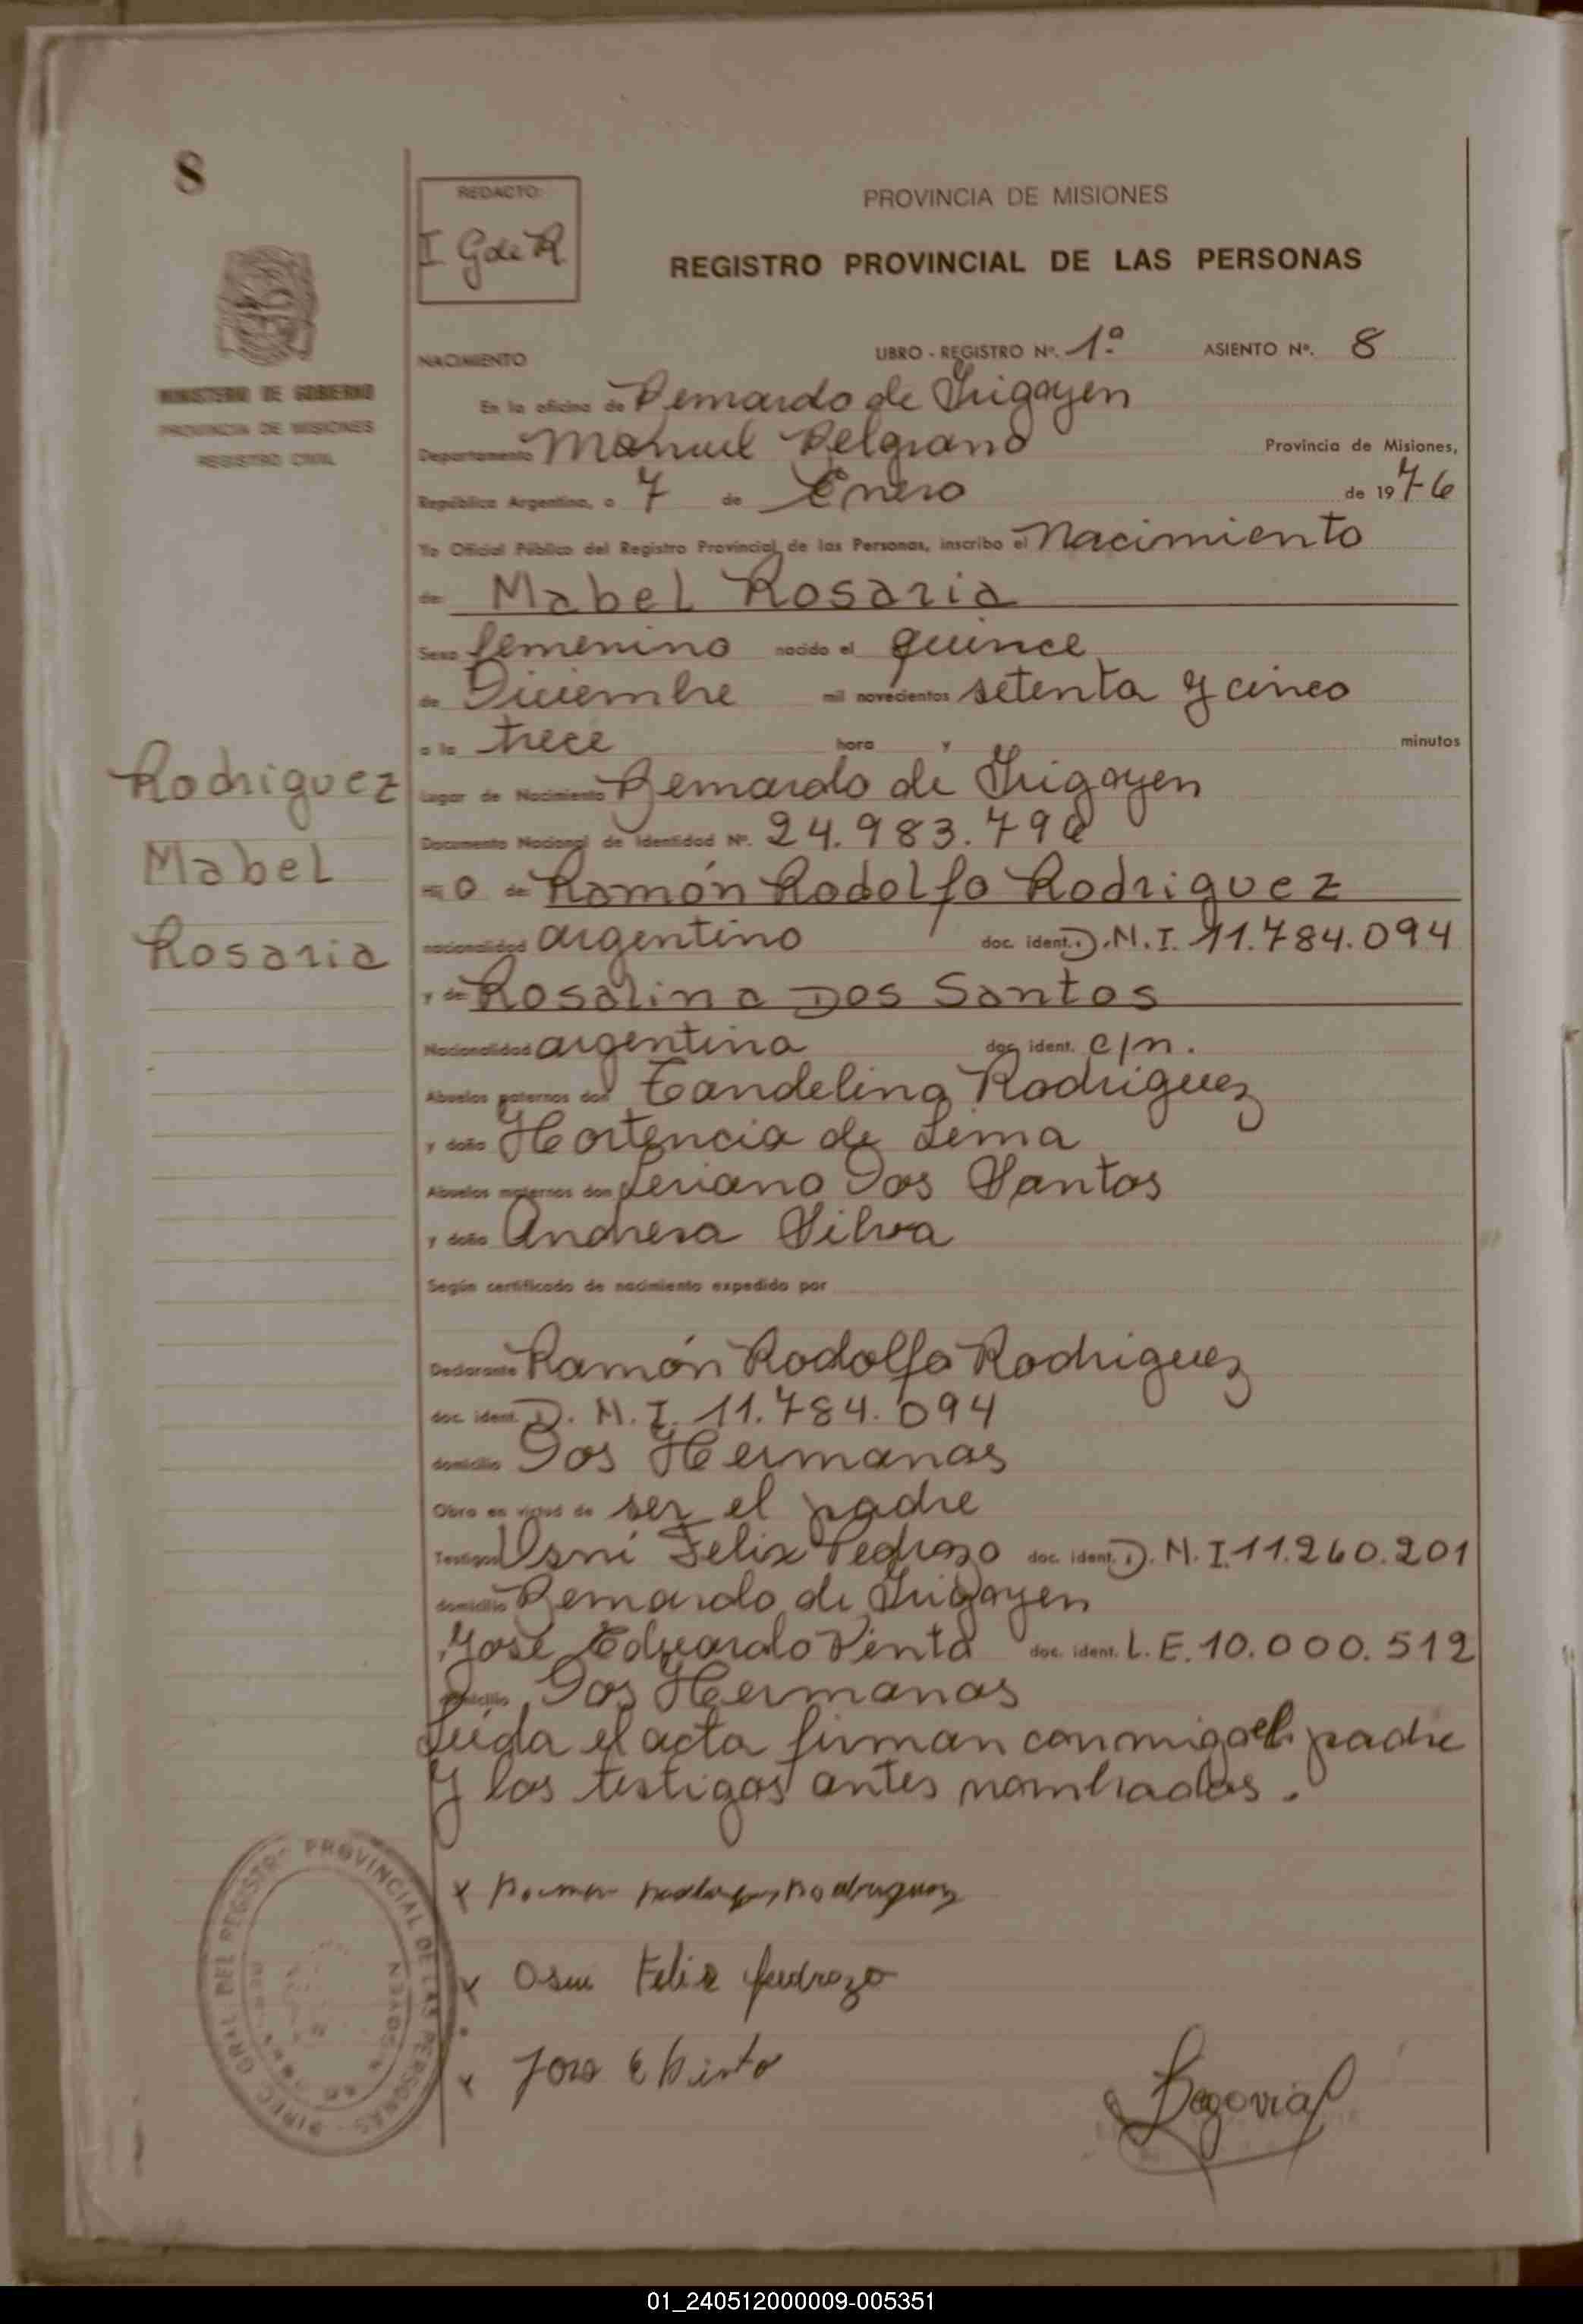 8
REDACTO:
I G de R
PROVINCIA DE MISIONES
REGISTRO PROVINCIAL DE LAS PERSONAS
MINISTERIO DE GOBIERNO
PROVINCIA DE MISIONES
REGISTRO CIVIL
NACIMIENTO
LIBRO - REGISTRO Nº. 1º ASIENTO Nº. 8
En la oficina de Bernardo de Irigoyen
Departamento Manuel Belgrano Provincia de Misiones,
República Argentina, a 7 de Enero de 1976
Yo Oficial Público del Registro Provincial de las Personas, inscribo el Nacimiento
de Mabel Rosaria
Sexo femenino nacido el quince
de Diciembre mil novecientos setenta y cinco
a la trece hora y minutos
Lugar de Nacimiento Bernardo de Irigoyen
Documento Nacional de Identidad Nº. 24.983.79
Hij o de Ramón Rodolfo Rodriguez
nacionalidad argentino doc. ident. D.N.I. 11.784.094
y de Rosalina Dos Santos
Nacionalidad argentina doc. ident. c/n.
Abuelos paternos don Candelino Rodriguez
y doña Hortencia de Lema
Abuelos maternos don Dos Santos
y doña Andresa Silva
Según certificado de nacimiento expedido por
Declarante Ramón Rodolfo Rodriguez
doc. ident. D.N.I. 11.784.094
domicilio Dos Hermanas
Obra en virtud de ser el padre
Testigos Osni Felix Pedrozo doc. ident. D.N.I. 11.260.201
domicilio Bernardo de Irigoyen
y José Eduardo Pinto doc. ident. L.E. 10.000.512
domicilio Dos Hermanas
Leída el acta firman conmigo el padre
y los testigos antes nombrados.
Rodriguez
Mabel
Rosaria
x Ramon Rodolfo Rodriguez
x Osni Felix Pedrozo
x Jose E Pinto
Segovia
DIREC. GRAL. DEL REGISTRO PROVINCIAL DE LAS PERSONAS
01_240512000009-005351